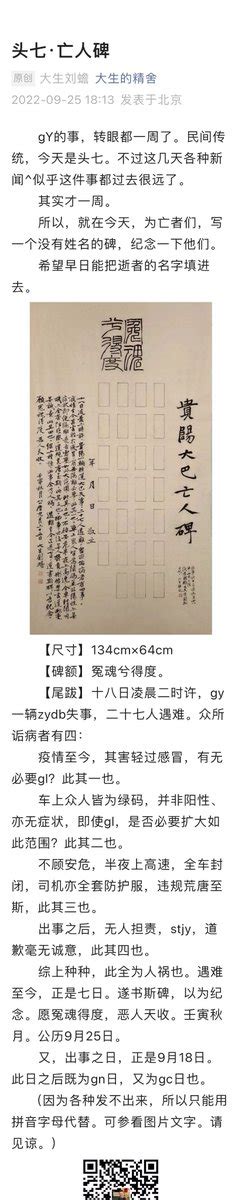 头七·亡人碑
原创 大生刘蟾 大生的精舍
2022-09-25 18:13 发表于北京
gY的事，转眼都一周了。民间传
统，今天是头七。不过这几天各种新
闻^似乎这件事都过去很远了。
其实才一周。
所以，就在今天，为亡者们，写
一个没有姓名的碑，纪念一下他们。
希望早日能把逝者的名字填进
去。
冤魂
兮得度
貴陽大巴亡人碑
年 月 日
【尺寸】134cm×64cm
【碑额】冤魂兮得度。
【尾跋】十八日凌晨二时许，gy
一辆zydb失事，二十七人遇难。众所
诟病者有四：
疫情至今，其害轻过感冒，有无
必要gl？此其一也。
车上众人皆为绿码，并非阳性、
亦无症状，即使gl，是否必要扩大如
此范围？此其二也。
不顾安危，半夜上高速，全车封
闭，司机亦全套防护服，违规荒唐至
斯，此其三也。
出事之后，无人担责，stjy，道
歉毫无诚意，此其四也。
综上种种，此全为人祸也。遇难
至今，正是七日。遂书斯碑，以为纪
念。愿冤魂得度，恶人天收。壬寅秋
月。公历9月25日。
又，出事之日，正是9月18日。
此日之后既为gn日，又为gc日也。
（因为各种发不出来，所以只能用
拼音字母代替。可参看图片文字。请
见谅。）